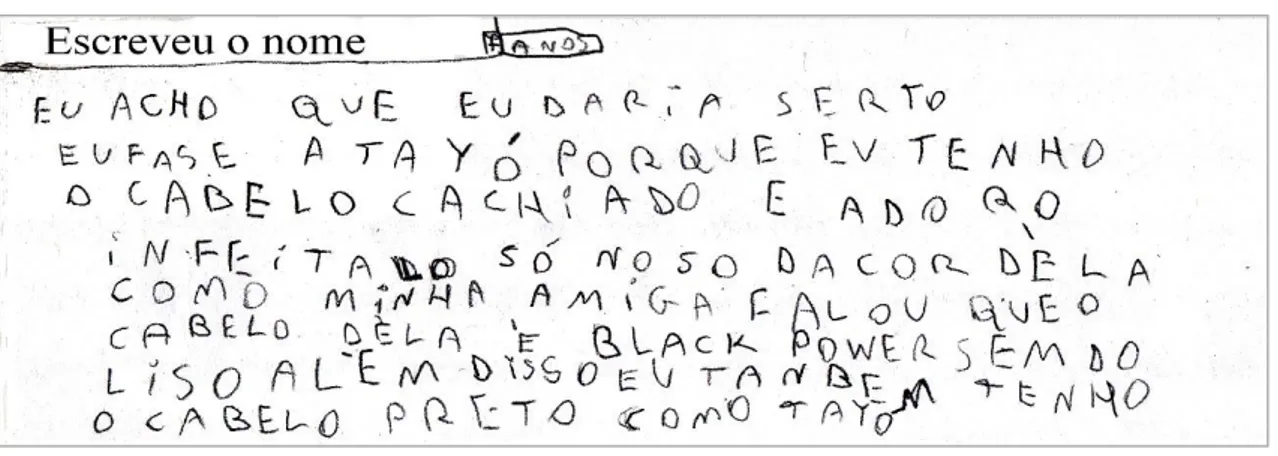 Escreveu o nome
7 ANOS
EU ACHO QUE EU DARIA SERTO
EU FASE A TAYÓ PORQUE EU TENHO
O CABELO CACHIADO E ADORO
INFEITALO SÓ NO SO DA COR DÈLA
COMO MINHA AMIGA FALOU QUE O
CABELO DÈLA È BLACK POWER SEMDO
LISO ALÈM DISSO EU TANBEM TENHO
O CABELO PRETO COMO TAYO